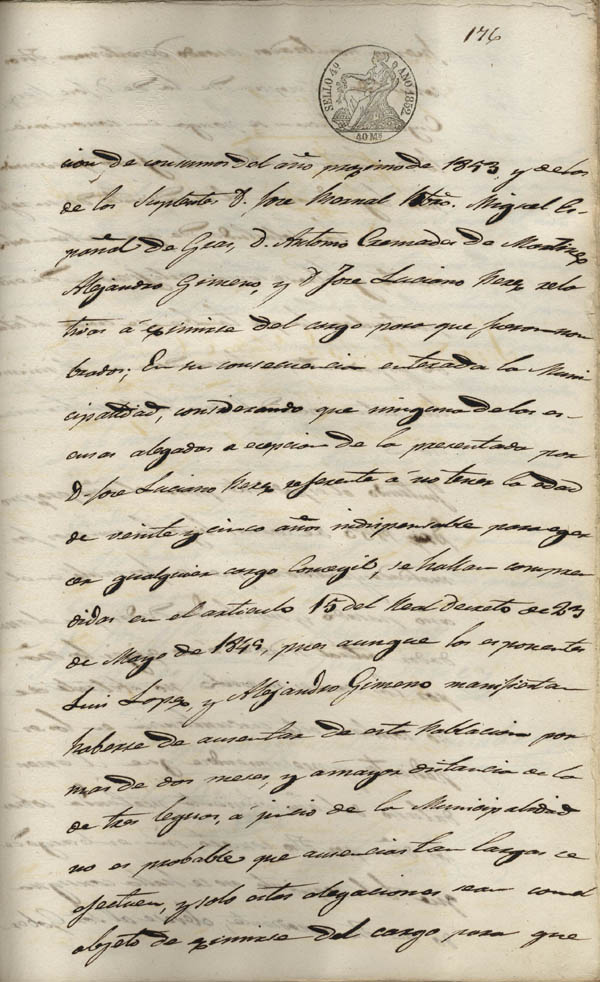 176
SELLO 4º AÑO 1852
40 Ms
cion, de consumos del año proximo de 1853, y de los
de los Suplentes D. Jose Bernal Miguel Es-
pañol de Gras, D. Antonio Cremades de Martinez
Alejandro Gimeno, y D. Jose Luciano Perez rela
tivas á eximirse del cargo para que fueron nom
brados; En su consecuencia enterada la Muni
cipalidad, considerando que ninguna de las es-
cusas alegadas a ecepcion de la presentada por
D. Jose Luciano Perez referente á no tener la edad
de veinte y cinco años indispensable para eger
cer qualquier cargo Concegil, se hallan compren
didas en el articulo 15 del Real Decreto de 23
de Mayo de 1845, pues aunque los esponentes
Luis Lopez, y Alejandro Gimeno manifiestan
haberse de ausentar de esta Poblacion por
mas de dos meses, y a mayor distancia de la
de tres leguas, á juicio de la Municipalidad
no es probable que ausencias tan largas se
efectuen, y solo estas alegaciones sean con el
objeto de eximirse del cargo para que